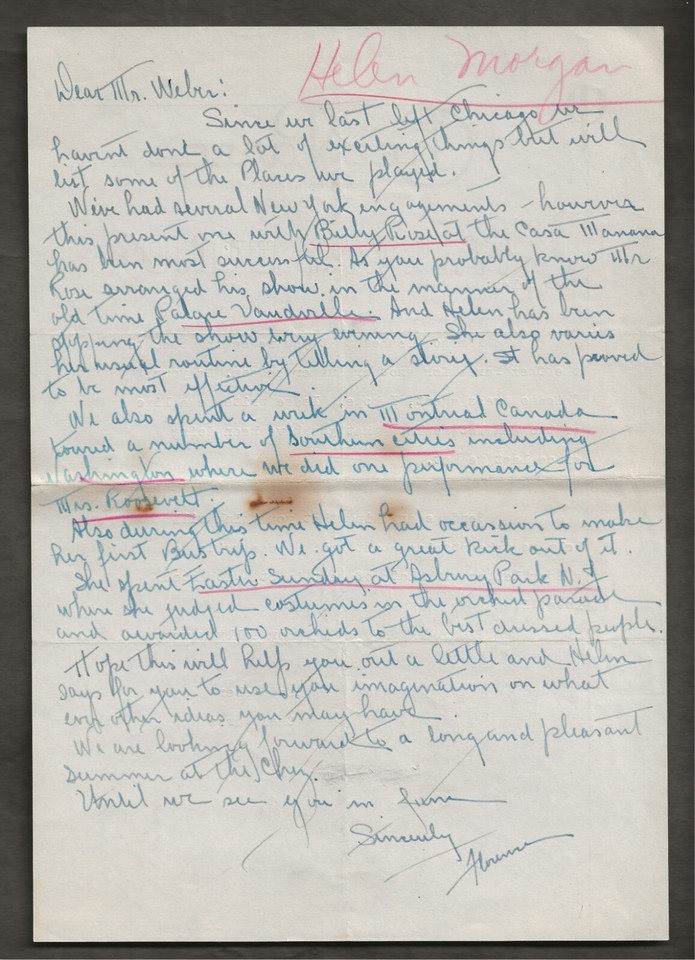 Helen Morgan
Dear Mr. Weber:
Since we last left Chicago we
havent done a lot of exciting things but will
list some of the Places we played.
Weve had several New York engagements - however
this present one with Billy Rose at the Casa Manana
has been most successful. As you probably know Mr
Rose arranged his show in the manner of the
old time Palace Vaudville. And Helen has been
stopping the show every evening. She also varies
her usual routine by telling a story. It has proved
to be most effective.
We also spent a week in Montreal Canada
toured a number of Southern cities including
Washington where we did one performance for
Mrs. Roosevelt.
Also during this time Helen had occassion to make
her first Bus trip. We got a great kick out of it.
She spent Easter Sunday at Asbury Park N.J.
where she judged costumes in the orchid parade
and awarded 100 orchids to the best dressed people.
Hope this will help you out a little and Helen
says for you to use you imagination on what
ever other ideas you may have.
We are looking forward to a long and pleasant
summer at the Chez.
Until we see you in June
Sincerely
Florence